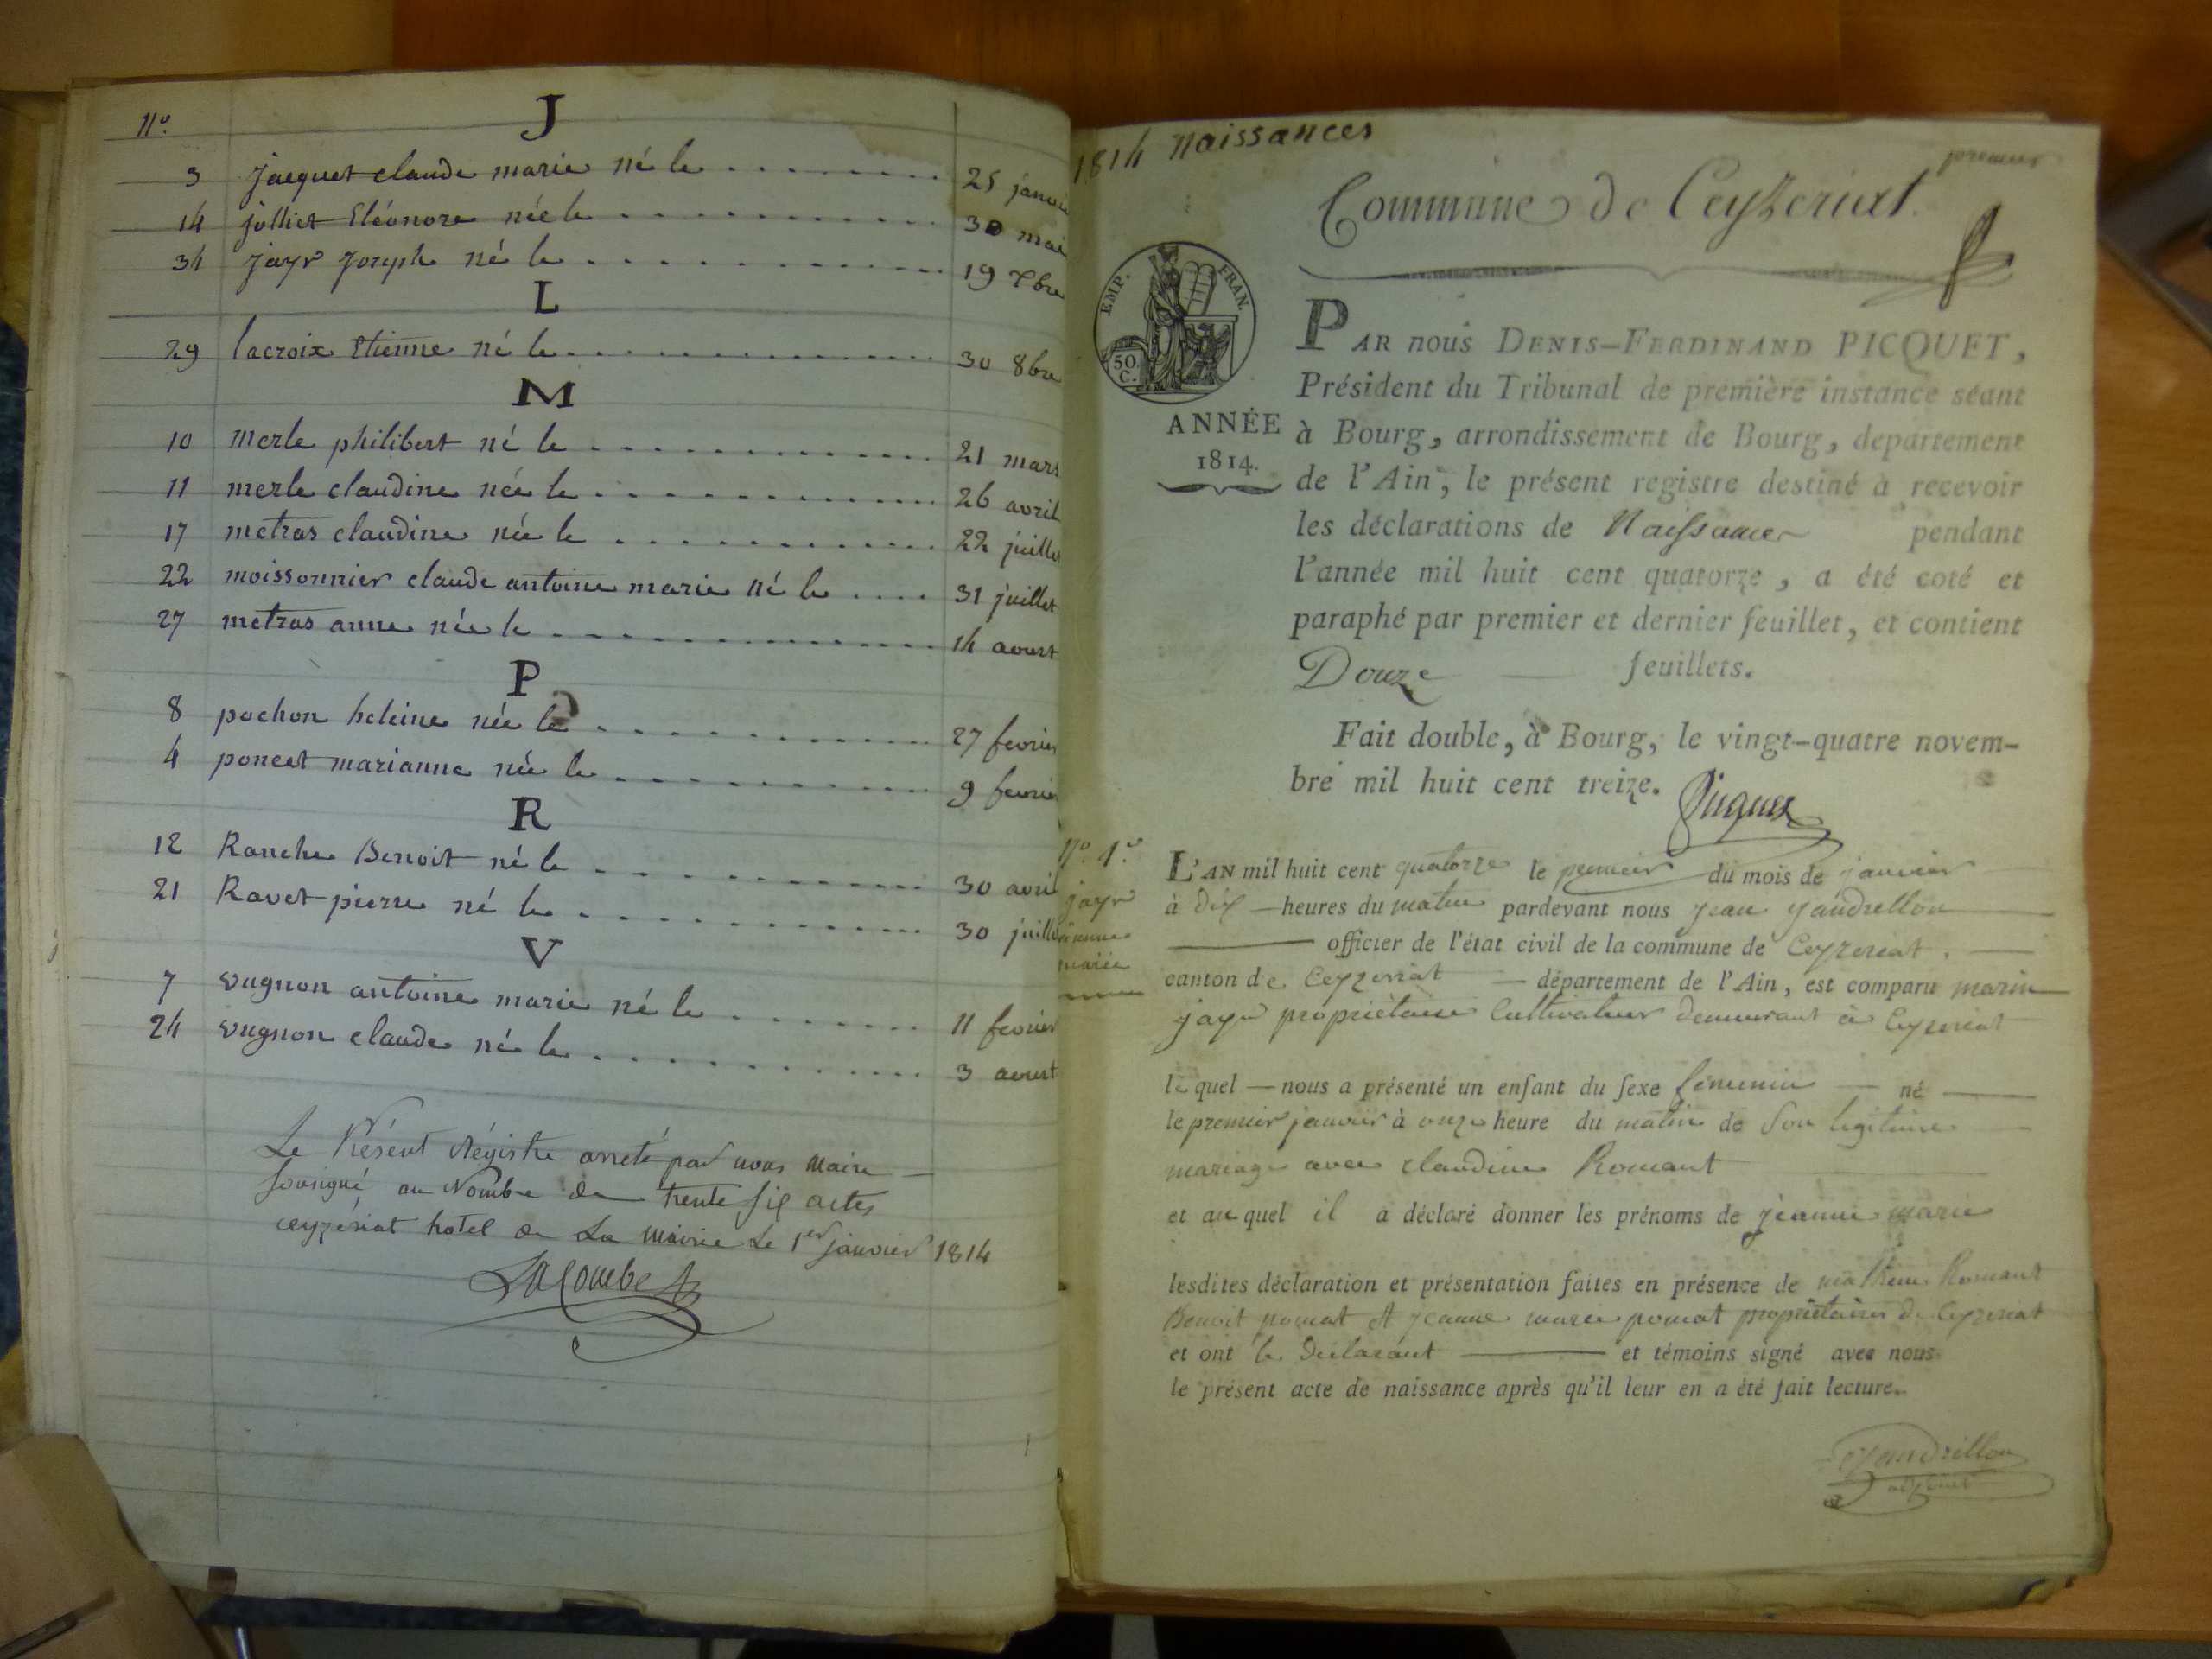 N.o
J
3 jacquet claude marie né le 25 janvi
14 jolliet Eléonore née le 30 mai
34 jayr joseph né le 19 Xbre
L
29 lacroix Etienne né le 30 8bre
M
10 merle philibert né le 21 mars
11 merle claudine née le 26 avril
17 metras claudine née le 22 juillet
22 moissonnier claude antoine marie né le 31 juillet
27 metras anne née le 14 aoust
P
8 pochon heleine née le 27 fevrier
4 poncet marianne née le 9 fevrier
R
12 Ranche Benoit né le 30 avril
21 Ravet pierre né le 30 juillet
V
7 vugnon antoine marie né le 11 fevrier
24 vugnon claude né le 3 aoust
Le Présent Régistre arreté par nous Maire
sousigné au Nombre de trente six actes
ceyzériat hotel de La Mairie Le 1er janvier 1814
Lacombe
1814 Naissances
premier
Commune de Ceyzeriat.
EMP. FRAN.
50 C.
ANNÉE
1814.
PAR nous DENIS-FERDINAND PICQUET,
Président du Tribunal de première instance séant
à Bourg, arrondissement de Bourg, département
de l'Ain, le présent registre destiné à recevoir
les déclarations de Naissances pendant
l'année mil huit cent quatorze, a été coté et
paraphé par premier et dernier feuillet, et contient
Douze feuillets.
Fait double, à Bourg, le vingt-quatre novem-
bre mil huit cent treize.
Picquet
N.o 1.er
jayr
jeanne
marie
L'AN mil huit cent quatorze le premier du mois de janvier
à dix heures du matin pardevant nous jean yandrellon
officier de l'état civil de la commune de Ceyzeriat.
canton de Ceyzeriat département de l'Ain, est comparu marin
jayr propriètaire Cultivateur demeurant à Ceyzeriat
lequel nous a présenté un enfant du sexe féminin né
le premier janvier à onze heure du matin de son legitime
mariage avec claudine Romant
et auquel il a déclaré donner les prénoms de jeanne marie
lesdites déclaration et présentation faites en présence de Romant
Benoit pomat et jeanne marie pomat propriètaires de Ceyzeriat
et ont le Déclarant et témoins signé avec nous
le présent acte de naissance après qu'il leur en a été fait lecture.
yandrellon
adjoint